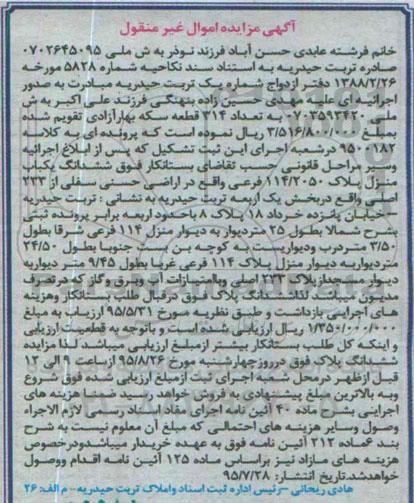 آگهی مزایده اموال غیر منقول
خانم فرشته عابدی حسن آباد فرزند نوذر به ش ملی ۰۷۰۲۶۴۵۰۹۵
صادره تربت حیدریه به استناد سند نکاحیه شماره ۵۸۲۸ مورخه
۱۳۸۸/۲/۲۶ دفتر ازدواج شماره یک تربت حیدریه مبادرت به صدور
اجرائیه ای علیه مهدی حسین زاده بنهنگی فرزند علی اکبر به ش
ملی ۰۷۰۳۵۹۳۴۲۰ به تعداد ۳۱۴ قطعه سکه بهار آزادی تقویم شده
بمبلغ ۳/۵۱۶/۸۰۰/۰۰۰ ریال نموده است که پرونده ای به کلاسه
۹۵۰۰۱۸۲ در شعبه اجرای این ثبت تشکیل که پس از ابلاغ اجرائیه
وسیر مراحل قانونی حسب تقاضای بستانکار فوق ششدانگ یکباب
منزل پلاک ۱۱۴/۲۰۵۰ فرعی واقع در اراضی حسنی سفلی از ۲۳۳
اصلی واقع دربخش یک اربعه تربت حیدریه به نشانی : تربت حیدریه
–خیابان پانزده خرداد ۱۸ پلاک ۸ باحدود اربعه برابر پرونده ثبتی
بشرح شمالا بطول ۲۵ متردیوار به دیوار منزل ۱۱۴ فرعی شرقا بطول
۳/۵۰ متردرب ودیواریست به کوچه بن بست جنوبا بطول ۲۴/۵۰
متردیواربه دیوار منزل پلاک ۱۱۴ فرعی غربا بطول ۹/۴۵ متر دیواربه
دیوار مسجداز پلاک ۲۳۳ اصلی وباامتیازات آب وبرق وگاز که درتصرف
مدیون میباشد لذاششدانگ پلاک فوق درقبال طلب بستانکار وهزینه
های اجرایی بازداشت و طبق نظریه مورخ ۹۵/۵/۳۱ ارزیاب به مبلغ
۱/۳۵۰/۰۰۰/۰۰۰ ریال ارزیابی شده است و باتوجه به قطعیت ارزیابی
و اینکه کل طلب بستانکار بیشتر ازمبلغ ارزیابی میباشد لذا مزایده
ششدانگ پلاک فوق درروز چهارشنبه مورخ ۹۵/۸/۲۶ ازساعت ۹ الی ۱۲
قبل ازظهر درمحل شعبه اجرای ثبت ازمبلغ ارزیابی شده فوق شروع
وبه بالاترین مبلغ پیشنهادی به فروش خواهد رسید ضمنا هزینه های
اجرایی بشرح ماده ۴۰ آئین نامه اجرای مفاد اسناد رسمی لازم الاجراء
وصول وسایر هزینه های احتمالی که مبلغ آن معلوم نیست به شرح
بند ۶ماده ۲۱۲ آئین نامه فوق به عهده خریدار میباشدودرخصوص
هزینه های مازاد نیز براساس ماده ۱۲۵ آئین نامه اقدام ووصول
خواهدشد.تاریخ انتشار: ۹۵/۷/۲۸
هادی ریحانی –سرئیس اداره ثبت اسناد واملاک تربت حیدریه– م الف: ۲۶